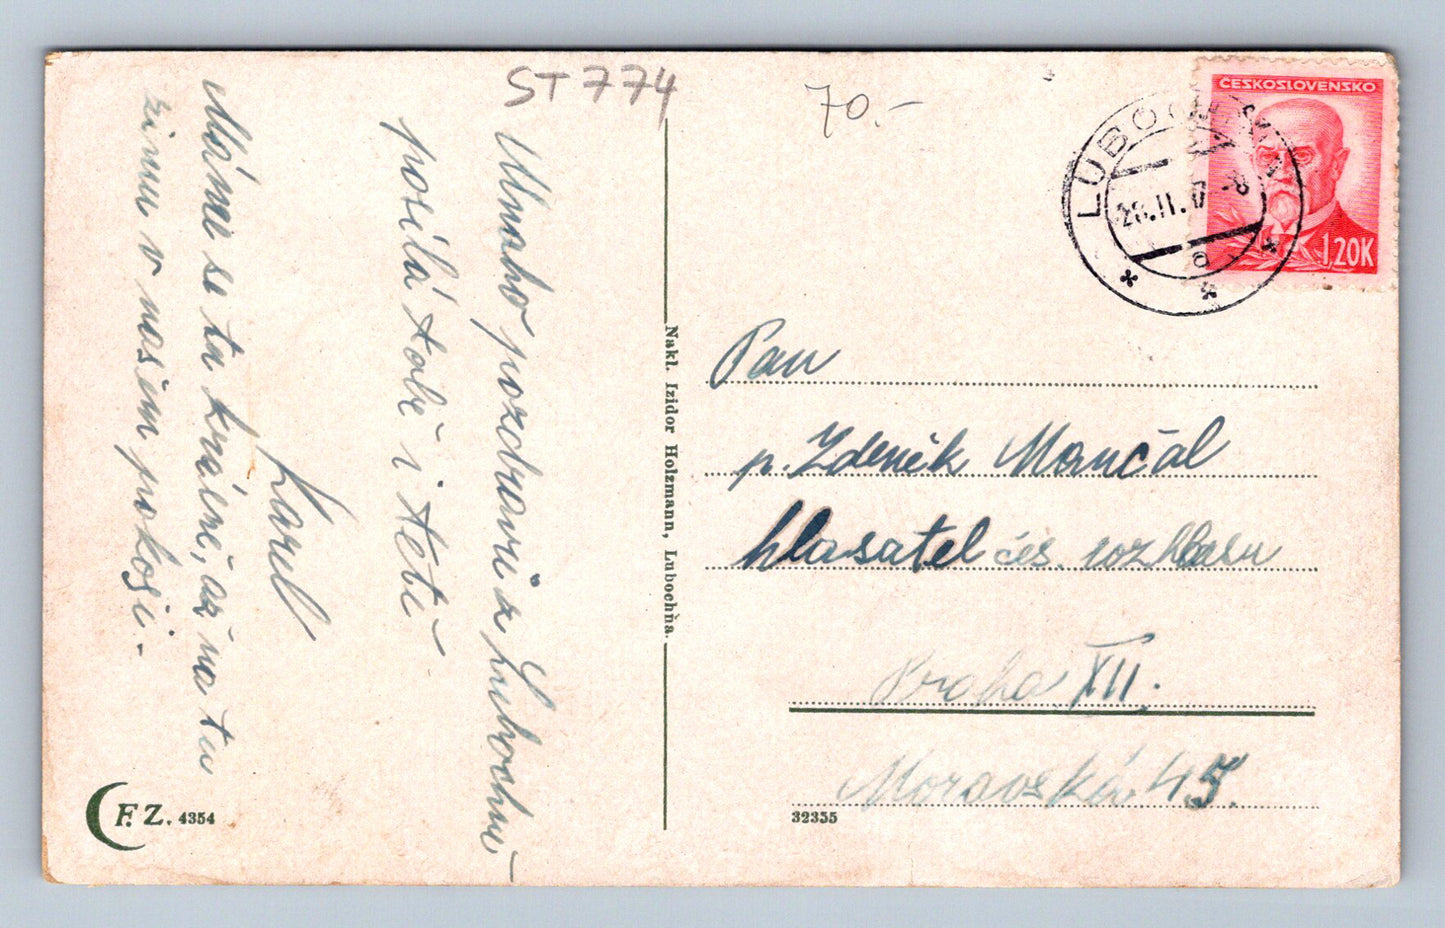 ST 774
70.-
Mnoho pozdravů z Lubochně
posílá tobě i tetě
Karel
Máme se tu králně, až na tu
zimu v našem pokoji.
Nakl. Izidor Holzmann, Lubochňa.
C F. Z. 4354
ČESKOSLOVENSKO
1,20K
LUBOCHŇA
28.II.47
a
Pan
p. Zdeněk Mančal
hlasatel čes. rozhlasu
Praha XII.
Moravská 45.
32355